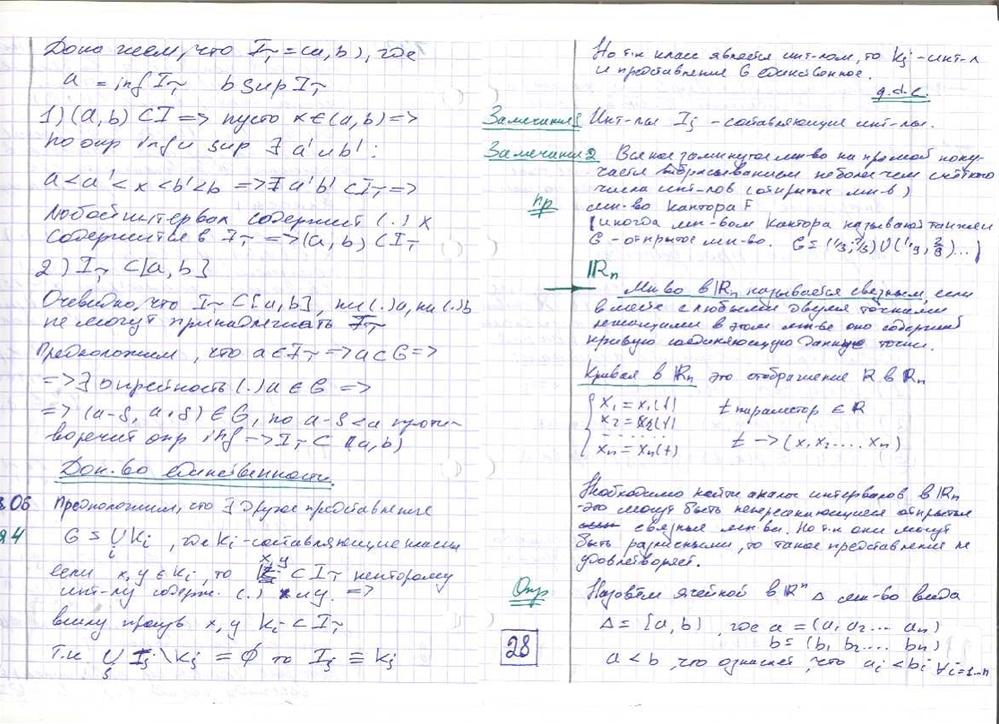 Докажем, что I_τ = (a, b), где
a = inf I_τ b sup I_τ
1) (a, b) ⊂ I => пусто x ∈ (a, b) =>
по опр inf и sup ∃ a' и b' :
a < a' < x < b' < b => ∃ a' b' ⊂ I_τ =>
Любой интервал содержит (.) x
содержится в I_τ => (a, b) ⊂ I_τ
2) I_τ ⊂ [a, b]
Очевидно, что I_τ ⊂ [a, b], ни (.) a, ни (.) b
не могут принадлежать I_τ
Предположим, что a ∈ I_τ => a ⊂ G =>
=> ∃ окрестность (.) a ∈ G =>
=> (a-δ, a+δ) ∈ G, но a-δ < a проти-
воречит опр inf -> I_τ ⊂ (a, b)
Док-во единственности.
Предположим, что ∃ другое представление
G = ∪ K_i, где K_i - составляющие классы
i
если x, y ∈ K_i, то x, y ⊂ I_τ некоторому
инт-лу содерж. (.) x и y. =>
ввиду произв x, y K_i ⊂ I_τ
Т.к ∪ I_j \ K_j = ∅ то I_j ≡ K_j
Но т.к класс является инт-лом, то K_j - инт-л
и представление G единственное.
q.d.e.
Замечание 1 Инт-лы I_j - составляющие инт-лы.
Замечание 2 Всякое замкнутое мн-во на прямой полу-
чается отбрасыванием не более чем счётного
числа инт-лов (открытых мн-в)
пр мн-во Кантора F
(иногда мн-вом Кантора называют также
G - открытое мн-во. G = (1/3, 2/3) ∪ (1/9, 2/9) ...)
ℝn
Мн-во в ℝn называется связным, если
вместе с любыми двумя точками
лежащими в этом мн-ве оно содержит
кривую соединяющую данные точки.
Кривая в ℝn это отображение ℝ в ℝn
x₁ = x₁(t) t параметр ∈ ℝ
x₂ = x₂(t)
.......
xn = xn(t) t -> (x₁ x₂ .... xn)
Необходимо найти аналог интервалов в ℝn
- это могут быть непересекающиеся открытые
связные мн-ва. Но т.к они могут
быть разными, то такое представление не
удовлетворяет.
Опр Назовём ячейкой в ℝⁿ Δ мн-во вида
Δ = [a, b), где a = (a₁ a₂ ... an)
b = (b₁ b₂ ... bn)
28
a < b, что означает, что ai < bi ∀i=1..n